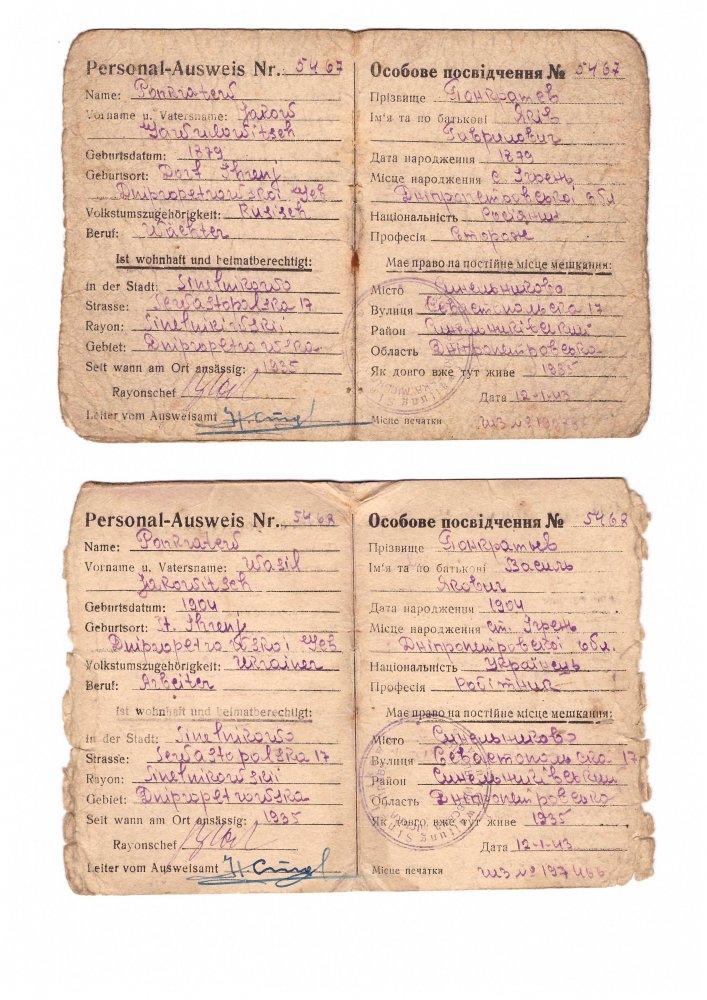 Personal-Ausweis Nr. 5467
Name: Ponkratew
Vorname u. Vatersname: Jakow
Gawrilowitsch
Geburtsdatum: 1879
Geburtsort: Dorf Ihrenj
Dnipropetrowskoi Geb
Volkstumszugehörigkeit: Rusisch
Beruf: Wächter
Ist wohnhaft und heimatberechtigt:
in der Stadt: Sinelnikowo
Strasse: Sewastopolska 17
Rayon: Sinelnikiwskii
Gebiet: Dnipropetrowska
Seit wann am Ort ansässig: 1935
Rayonschef
Leiter vom Ausweisamt
Особове посвідчення № 5467
Прізвище Понкратьев
Ім'я та по батькові Яків
Гаврилович
Дата народження 1879
Місце народження с. Ігрень
Дніпропетровської обл
Національність Росіянин
Професія Сторож
Має право на постійне місце мешкання:
Місто Синельниково
Вулиця Севастопольска 17
Район Синельниківський
Область Дніпропетровська
Як довго вже тут живе 1935
Дата 12-1-43
Місце печатки
Personal-Ausweis Nr. 5468
Name: Ponkratew
Vorname u. Vatersname: Wasil
Jakowitsch
Geburtsdatum: 1904
Geburtsort: St. Ihrenj
Dnipropetrowskoi Geb
Volkstumszugehörigkeit: Ukrainer
Beruf: Arbeiter
Ist wohnhaft und heimatberechtigt:
in der Stadt: Sinelnikowo
Strasse: Sewastopolska 17
Rayon: Sinelnikowskii
Gebiet: Dnipropetrowska
Seit wann am Ort ansässig: 1935
Rayonschef
Leiter vom Ausweisamt
Особове посвідчення № 5468
Прізвище Понкратьев
Ім'я та по батькові Василь
Якович
Дата народження 1904
Місце народження ст. Ігрень
Дніпропетровської обл.
Національність Українець
Професія Робітник
Має право на постійне місце мешкання:
Місто Синельниково
Вулиця Севастопольска 17
Район Синельниківський
Область Дніпропетровська
Як довго вже тут живе 1935
Дата 12-1-43
Місце печатки № 197466